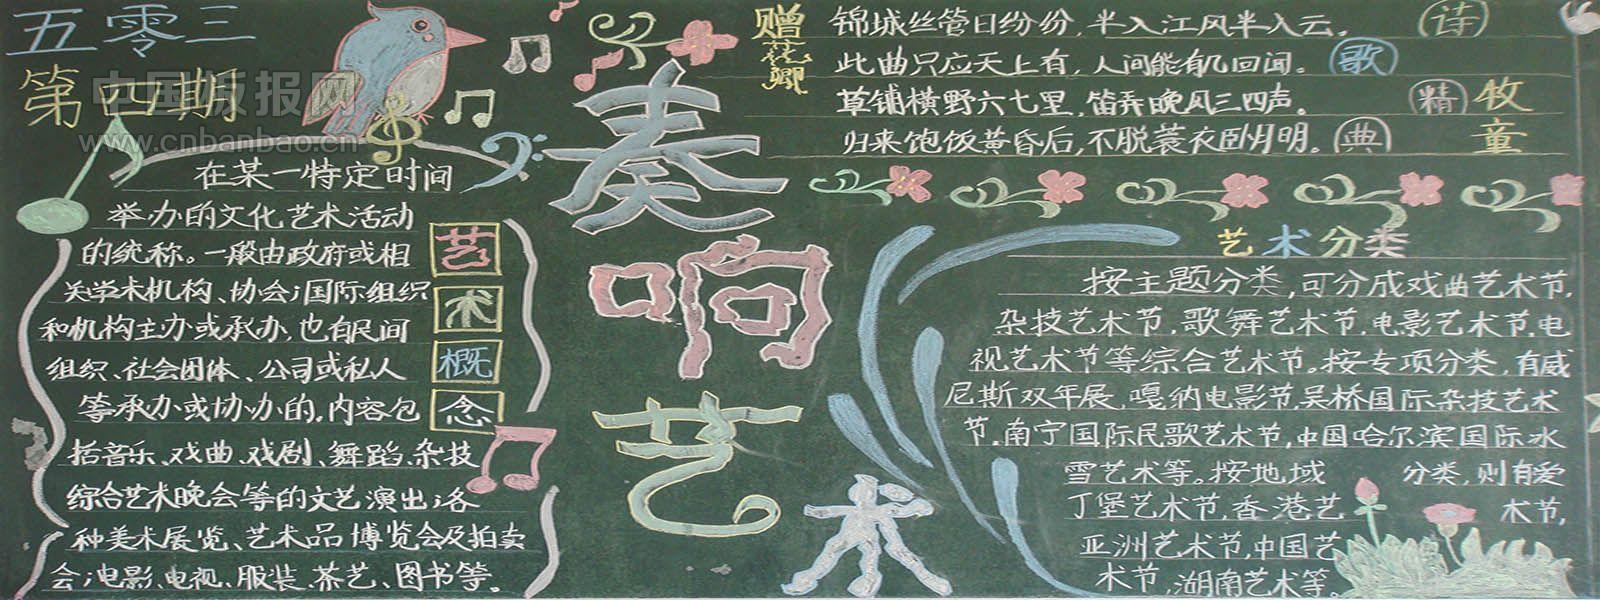 五零三
第四期
中国板报网
www.cnbanbao.cn
在某一特定时间
举办的文化艺术活动
的统称。一般由政府或相
关学术机构、协会;国际组织
和机构主办或承办,也有民间
组织、社会团体、公司或私人
等承办或协办的,内容包
括音乐、戏曲、戏剧、舞蹈、杂技
综合艺术晚会等的文艺演出;各
种美术展览、艺术品博览会及拍卖
会;电影、电视、服装、茶艺、图书等。
艺
术
概
念
奏
响
艺
术
赠花卿
锦城丝管日纷纷,半入江风半入云。
此曲只应天上有,人间能有几回闻。
草铺横野六七里,笛弄晚风三四声。
归来饱饭黄昏后,不脱蓑衣卧月明。
诗
歌
精
典
牧
童
艺术分类
按主题分类,可分成戏曲艺术节,
杂技艺术节,歌舞艺术节,电影艺术节,电
视艺术节等综合艺术节。按专项分类,有威
尼斯双年展,嘎纳电影节,吴桥国际杂技艺术
节,南宁国际民歌艺术节,中国哈尔滨国际冰
雪艺术等。按地域 分类,则有爱
丁堡艺术节,香港艺 术节,
亚洲艺术节,中国艺
术节,湖南艺术等。